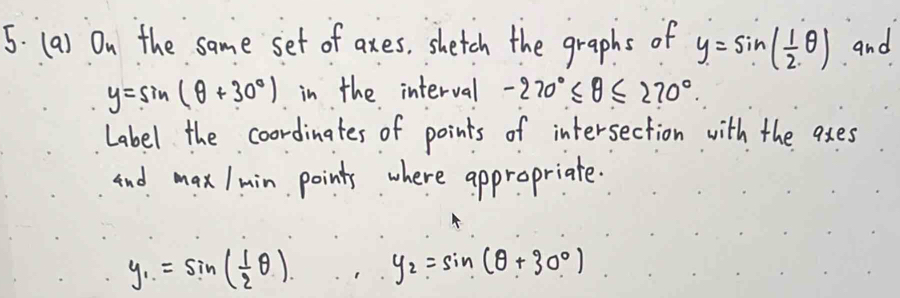 5. (a) On the same set of axes, sketch the graphs of y = sin(½θ) and
y = sin(θ + 30°) in the interval -270° ≤ θ ≤ 270°.
Label the coordinates of points of intersection with the axes
and max / min points where appropriate.
y₁ = sin(½θ). , y₂ = sin(θ + 30°)